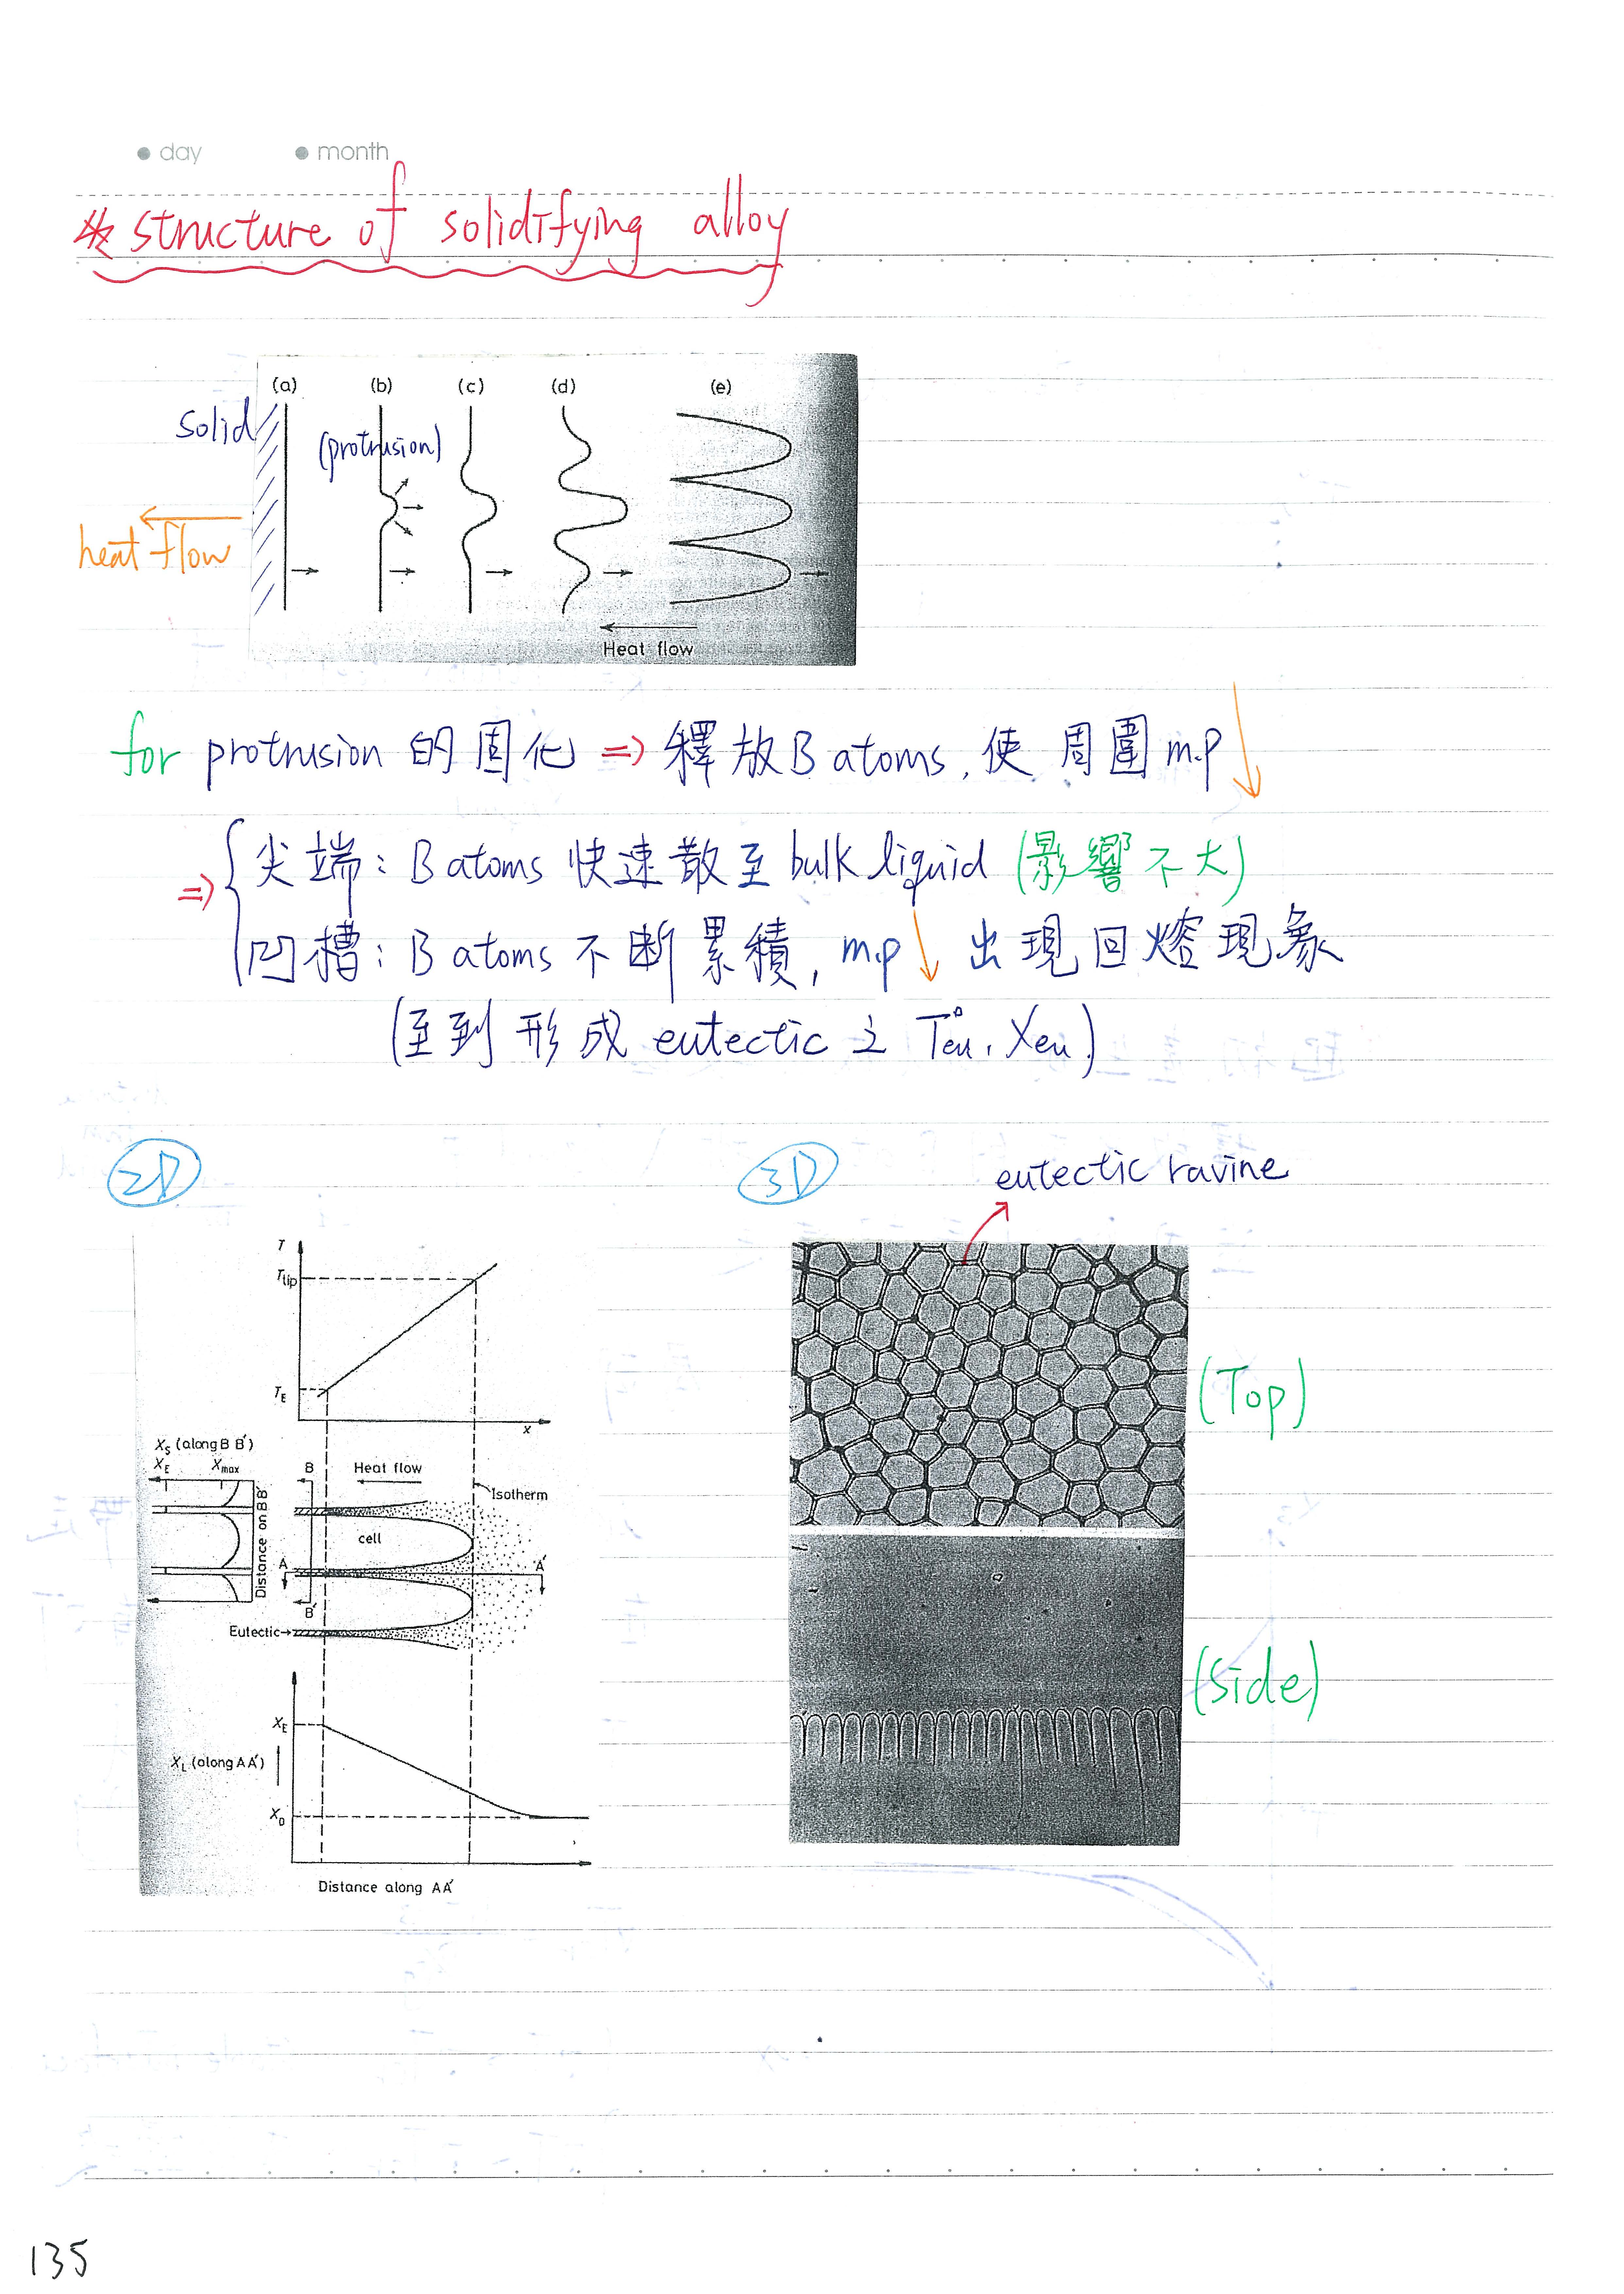 day month
* structure of solidifying alloy
(a) (b) (c) (d) (e)
Solid
(protrusion)
heat flow
Heat flow
for protrusion 的固化 => 釋放B atoms, 使周圍 m.p ↓
=> { 尖端: B atoms 快速散至 bulk liquid (影響不大)
凹槽: B atoms 不斷累積, m.p ↓ 出現回熔現象
(至到形成 eutectic 之 Teu, Xeu)
2D
3D
eutectic ravine
T
Ttip
TE
x
Xs (along B B')
XE Xmax
Distance on BB'
B
Heat flow
Isotherm
cell
A
A'
B'
Eutectic→
XE
XL (along AA')
X0
Distance along AA'
(Top)
(Side)
135